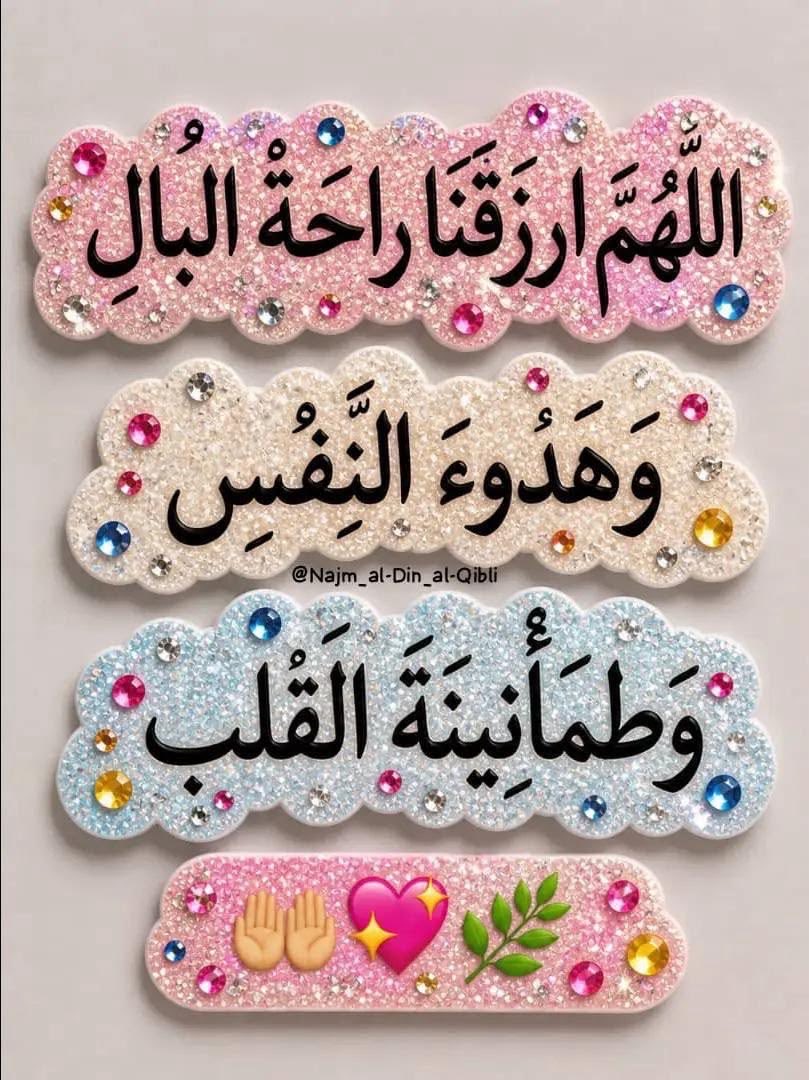 اللَّهُمَّ ارزَقَنَا راحَةْ البُالِ
وَهَدُوءَ النَِّفُسِ
@Najm_al-Din_al-Qibli
وَطمَأْنِينَةَ القَُلب
🤲🏼💖🌿